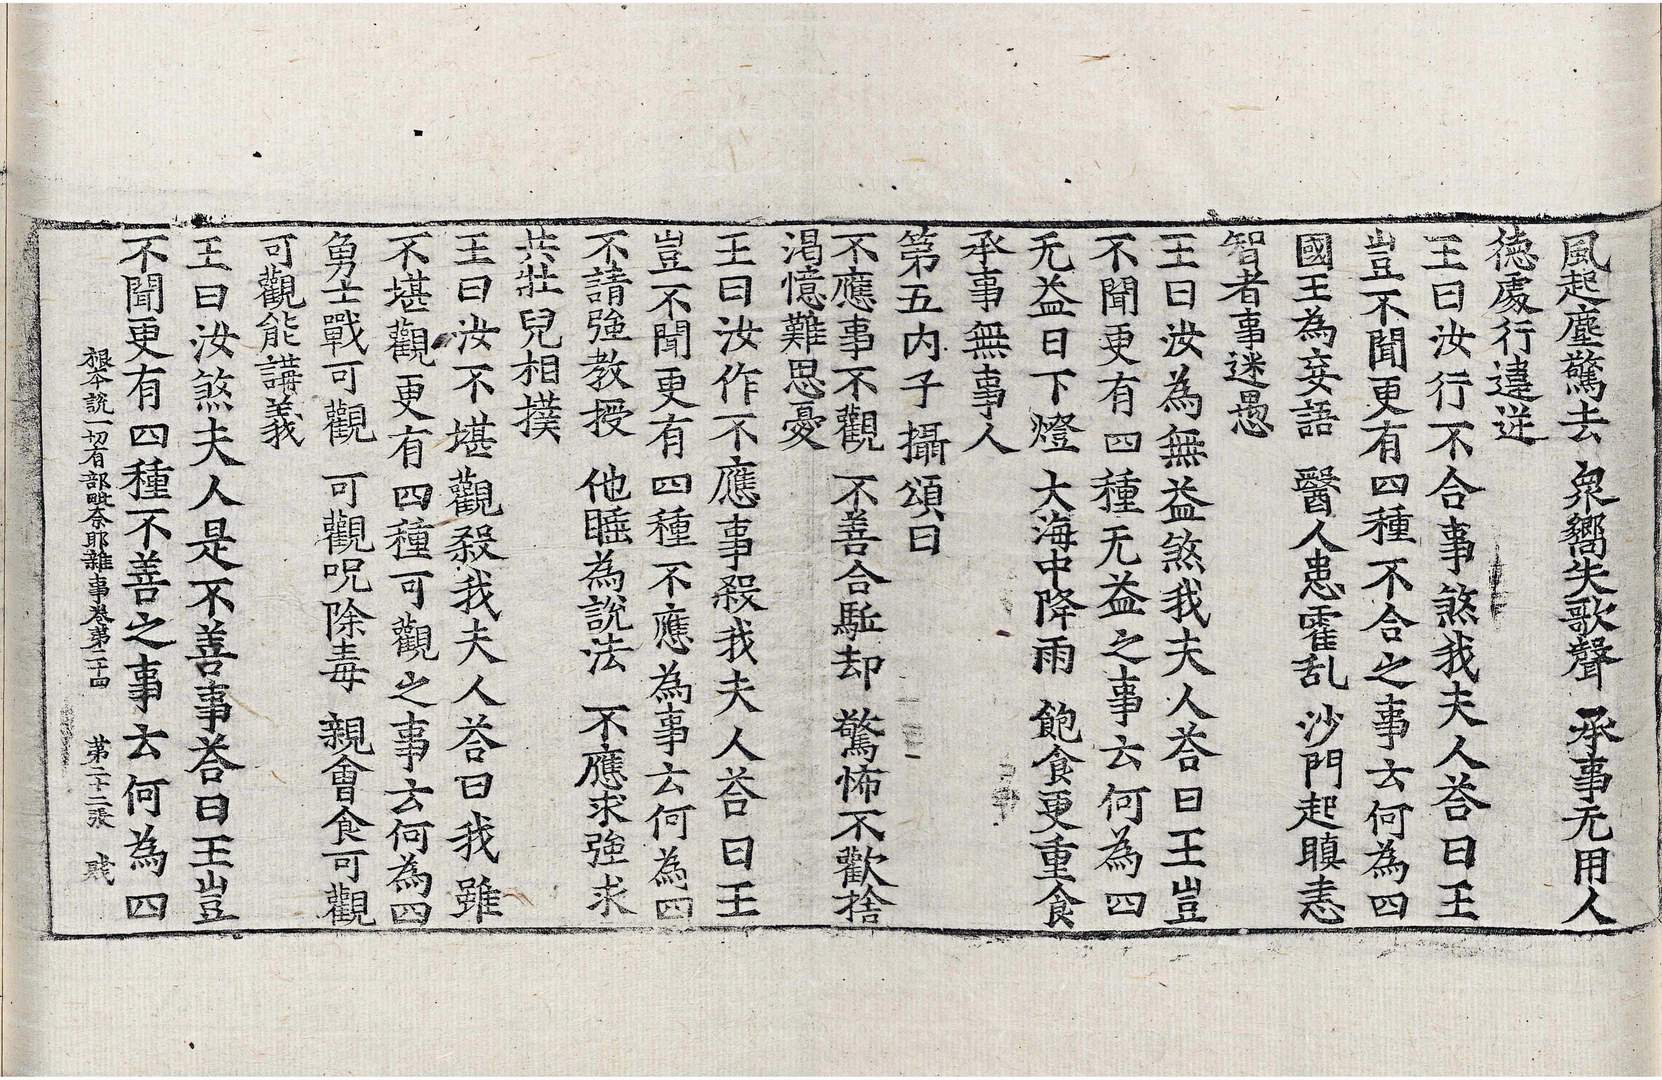 風起塵驚去 衆嚮失歌聲 承事无用人
德處行違逆
王曰汝行不合事煞我夫人荅曰王
豈不聞更有四種不合之事云何為四
國王為妄語 醫人患霍乱 沙門起瞋恚
智者事迷愚
王曰汝為無益煞我夫人荅曰王豈
不聞更有四種无益之事云何為四
无益日下燈 大海中降雨 飽食更重食
承事無事人
第五内子攝頌曰
不應事不觀 不善合駈却 驚怖不歡捨
渴憶難思憂
王曰汝作不應事殺我夫人荅曰王
豈不聞更有四種不應為事云何為四
不請強教授 他睡為說法 不應求強求
共壯兒相撲
王曰汝不堪觀殺我夫人荅曰我雖
不堪觀更有四種可觀之事云何為四
勇士戰可觀 可觀呪除毒 親會食可觀
可觀能講義
王曰汝煞夫人是不善事荅曰王豈
不聞更有四種不善之事云何為四
根本說一切有部毗奈耶雜事卷第二十四 第二十二張